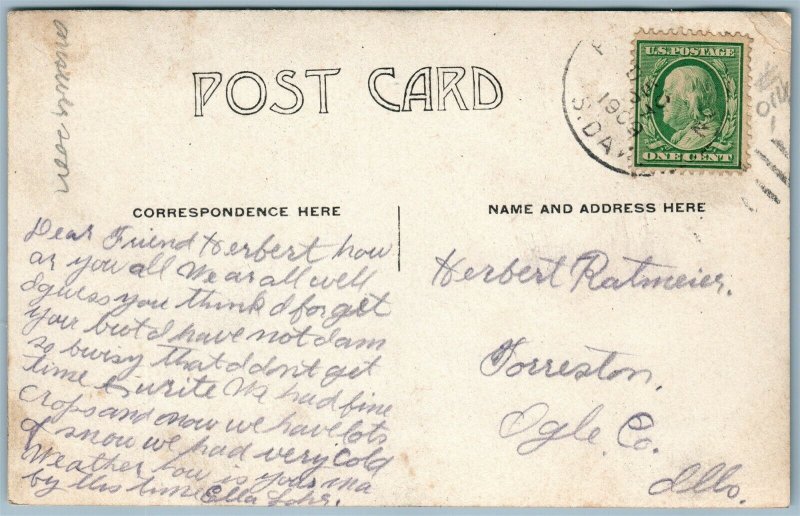 POST CARD
U.S. POSTAGE
ONE CENT
1909
S. DAK.
CORRESPONDENCE HERE
NAME AND ADDRESS HERE
Dear Friend Herbert how
ar you all We ar all well
I guess you think I forget
you but I have not I am
so buisy that I dont get
time to write We had fine
Crops and now we have lots
of snow we had very cold
Weather how is your ma
by this time Ella Lohr.
Herbert Ratmeier.
Forreston,
Ogle. Co.
Ills.